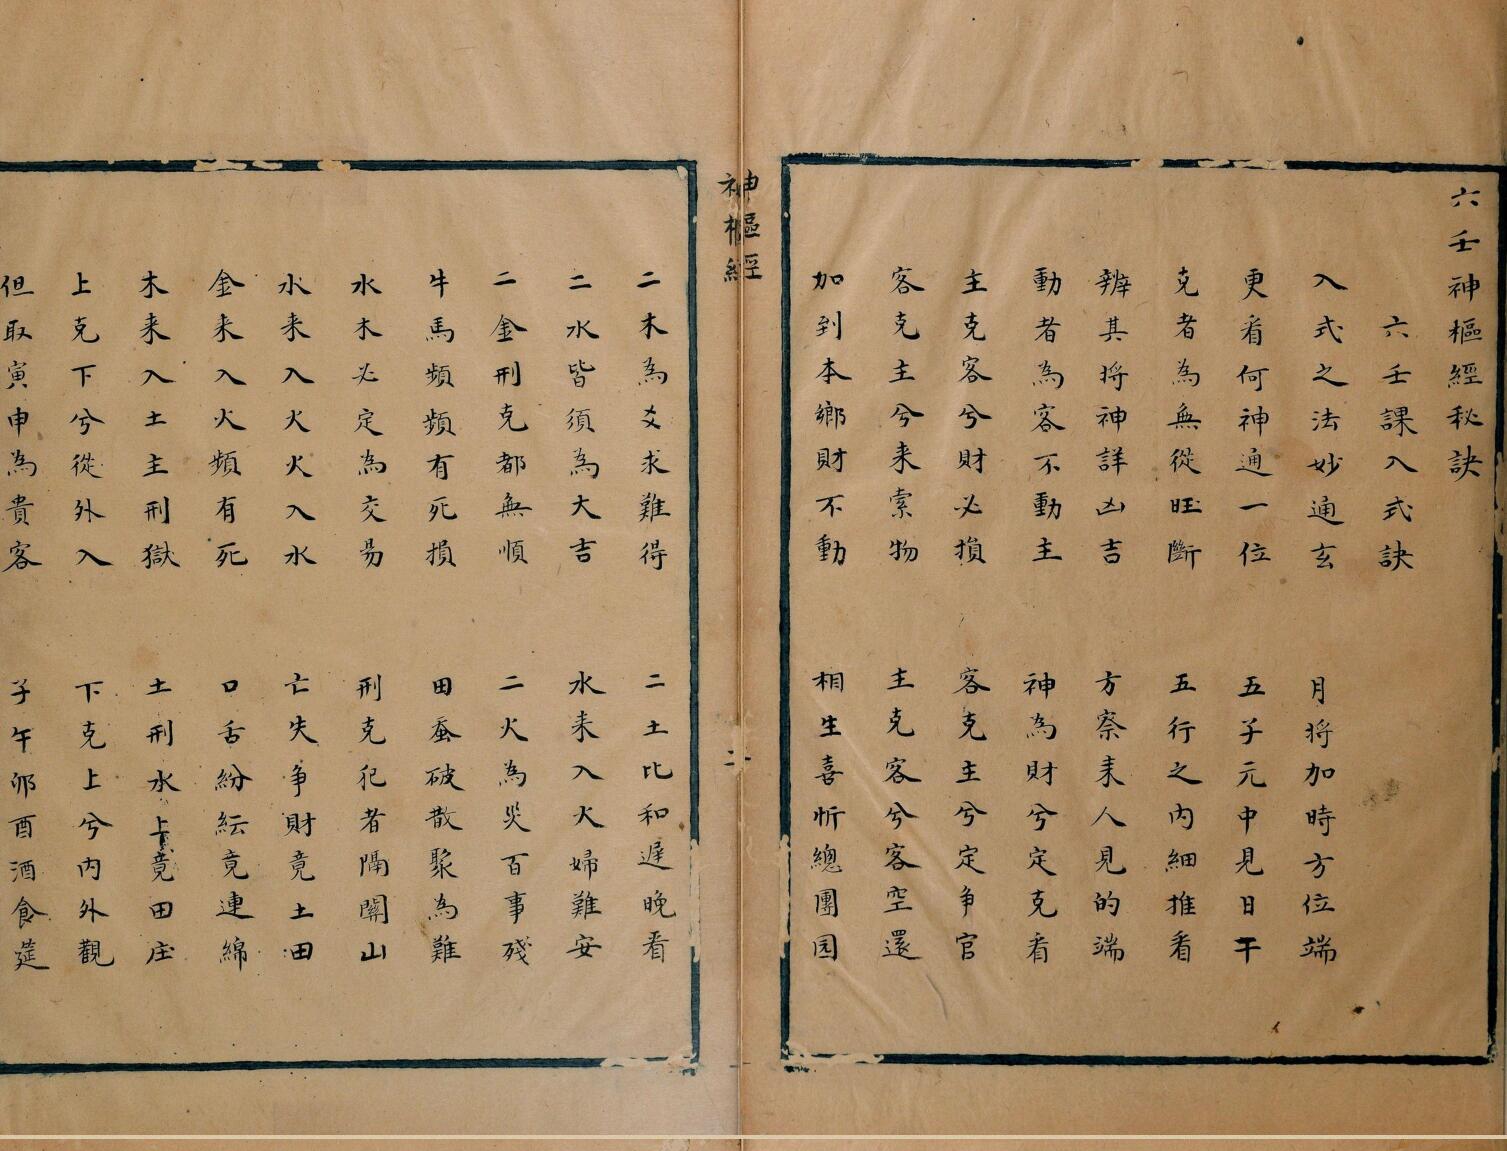 六壬神樞經秘訣
六壬課入式訣
入式之法妙通玄 月將加時方位端
更看何神通一位 五子元中見日干
克者為無從旺斷 五行之內細推看
辨其將神詳凶吉 方察来人見的端
動者為客不動主 神為財兮定克看
主克客兮財必損 客克主兮定争官
客克主兮来索物 主克客兮客空還
加到本鄉財不動 相生喜忻總團园
神樞經
二
二木為爻求難得 二土比和遅晚看
二水皆須為大吉 水来入火婦難安
二金刑克都無順 二火為災百事殘
牛馬頻頻有死損 田蚕破散聚為難
水木必定為交易 刑克犯者隔關山
水来入火火入水 亡失争財竟土田
金来入火頻有死 口舌紛紜竟連綿
木来入土主刑獄 土刑水上竟田庄
上克下兮從外入 下克上兮內外觀
但取寅申為貴客 子午卯酉酒食筵